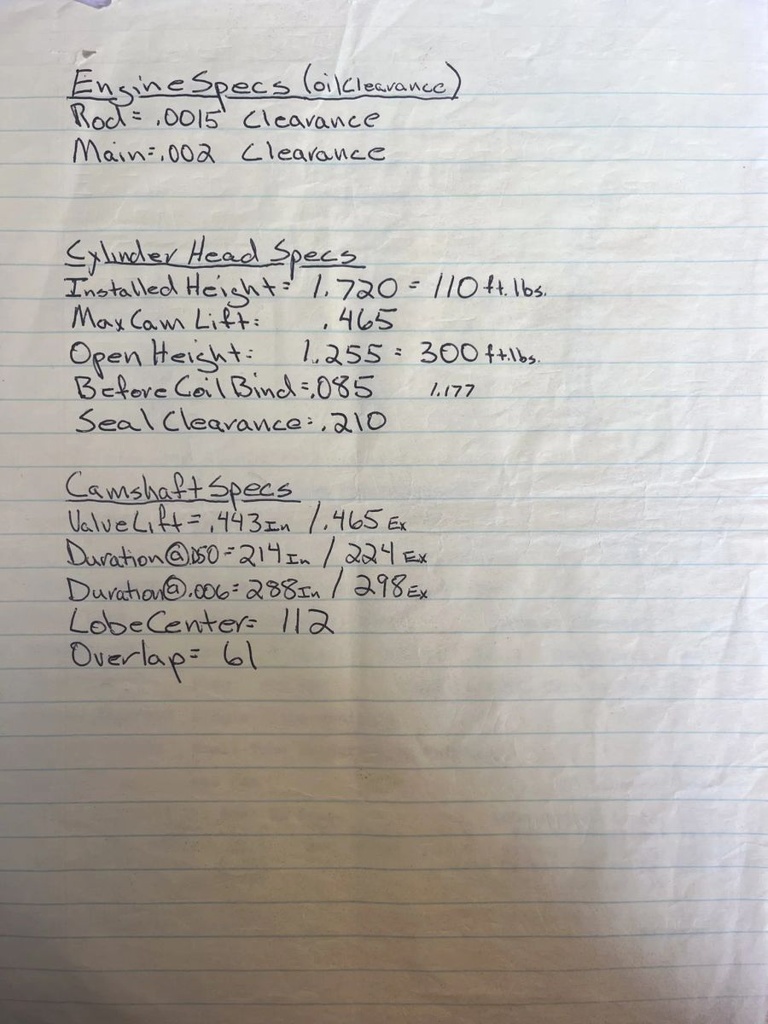 Engine Specs (oil Clearance)
Rod = .0015 Clearance
Main = .002 Clearance
Cylinder Head Specs
Installed Height = 1.720 = 110 ft.lbs.
Max Cam Lift = .465
Open Height = 1.255 = 300 ft.lbs.
Before Coil Bind = .085 1.177
Seal Clearance = .210
Camshaft Specs
Valve Lift = .443 In / .465 Ex
Duration @.050 = 214 In / 224 Ex
Duration @.006 = 288 In / 298 Ex
Lobe Center = 112
Overlap = 61